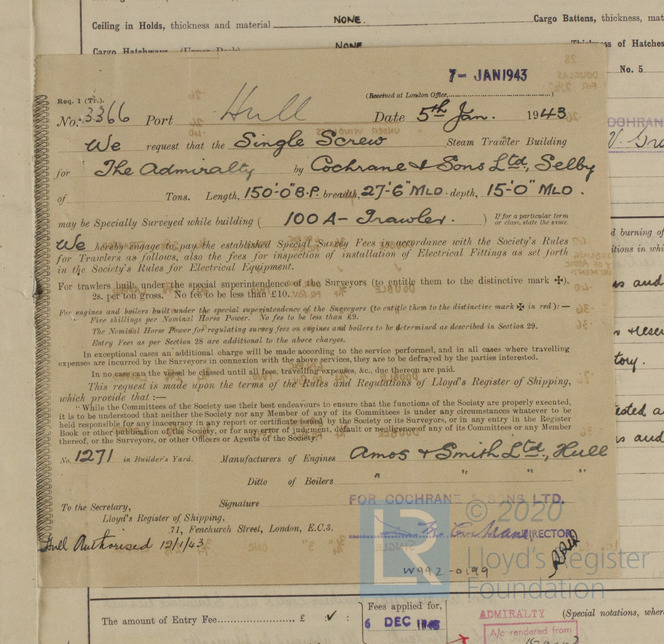 Ceiling in Holds, thickness and material NONE. Cargo Battens, thickness, mat
Cargo Hatchways (Upper Deck) NONE Thickness of Hatches
No. 5
7- JAN 1943
Req. 1 (Tr.). (Received at London Office,
No. 3366 Port Hull Date 5th Jan. 1943
We request that the Single Screw Steam Trawler Building
for The Admiralty by Cochrane & Sons Ltd., Selby
of Tons. Length, 150'-0" B.P. breadth, 27'-6" MLD. depth, 15'-0" MLD.
may be Specially Surveyed while building ( 100 A - Trawler. ) If for a particular term or class, state the same.
We hereby engage to pay the established Special Survey Fees in accordance with the Society's Rules
for Trawlers as follows, also the fees for inspection of installation of Electrical Fittings as set forth
in the Society's Rules for Electrical Equipment.
For trawlers built under the special superintendence of the Surveyors (to entitle them to the distinctive mark ✠),
2s. per ton gross. No fee to be less than £10.
For engines and boilers built under the special superintendence of the Surveyors (to entitle them to the distinctive mark ✠ in red):—
Five shillings per Nominal Horse Power. No fee to be less than £9.
The Nominal Horse Power for regulating survey fees on engines and boilers to be determined as described in Section 29.
Entry Fees as per Section 28 are additional to the above charges.
In exceptional cases an additional charge will be made according to the service performed, and in all cases where travelling
expenses are incurred by the Surveyors in connection with the above services, they are to be defrayed by the parties interested.
In no case can the vessel be classed until all fees, travelling expenses, &c., due thereon are paid.
This request is made upon the terms of the Rules and Regulations of Lloyd's Register of Shipping,
which provide that :—
"While the Committees of the Society use their best endeavours to ensure that the functions of the Society are properly executed,
it is to be understood that neither the Society nor any Member of any of its Committees is under any circumstances whatever to be
held responsible for any inaccuracy in any report or certificate issued by the Society or its Surveyors, or in any entry in the Register
Book or other publication of the Society, or for any error of judgment, default or negligence of any of its Committees or any Member
thereof, or the Surveyors, or other Officers or Agents of the Society."
No. 1271 in Builder's Yard. Manufacturers of Engines Amos & Smith Ltd, Hull
Ditto of Boilers " " "
To the Secretary, Signature FOR COCHRANE & SONS LTD.
Lloyd's Register of Shipping, DIRECTOR
71, Fenchurch Street, London, E.C.3.
Hull Authorised 12/1/43
LR
© 2020
Lloyd's Register
Foundation
W992-0199
The amount of Entry Fee £ : Fees applied for, ADMIRALTY (Special notations, where
6 DEC A/c rendered from